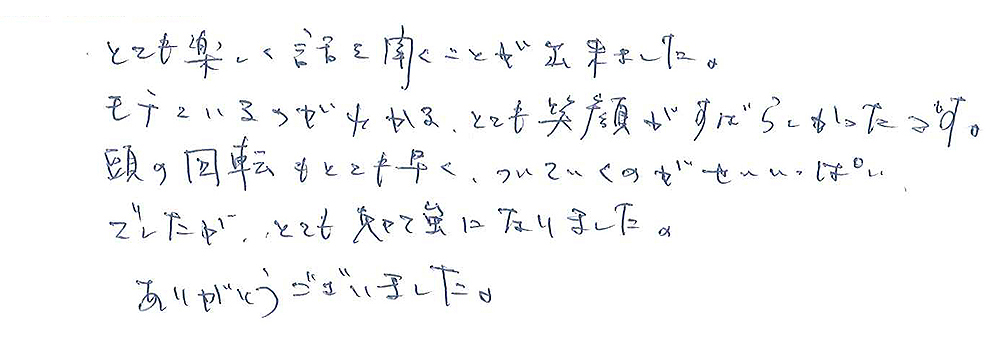 とても楽しく話を聞くことが出来ました。
モテているのがわかる、とても笑顔がすばらしかったです。
頭の回転もとても早く、ついていくのがせいいっぱい
でしたが、とても勉強になりました。
ありがとうございました。